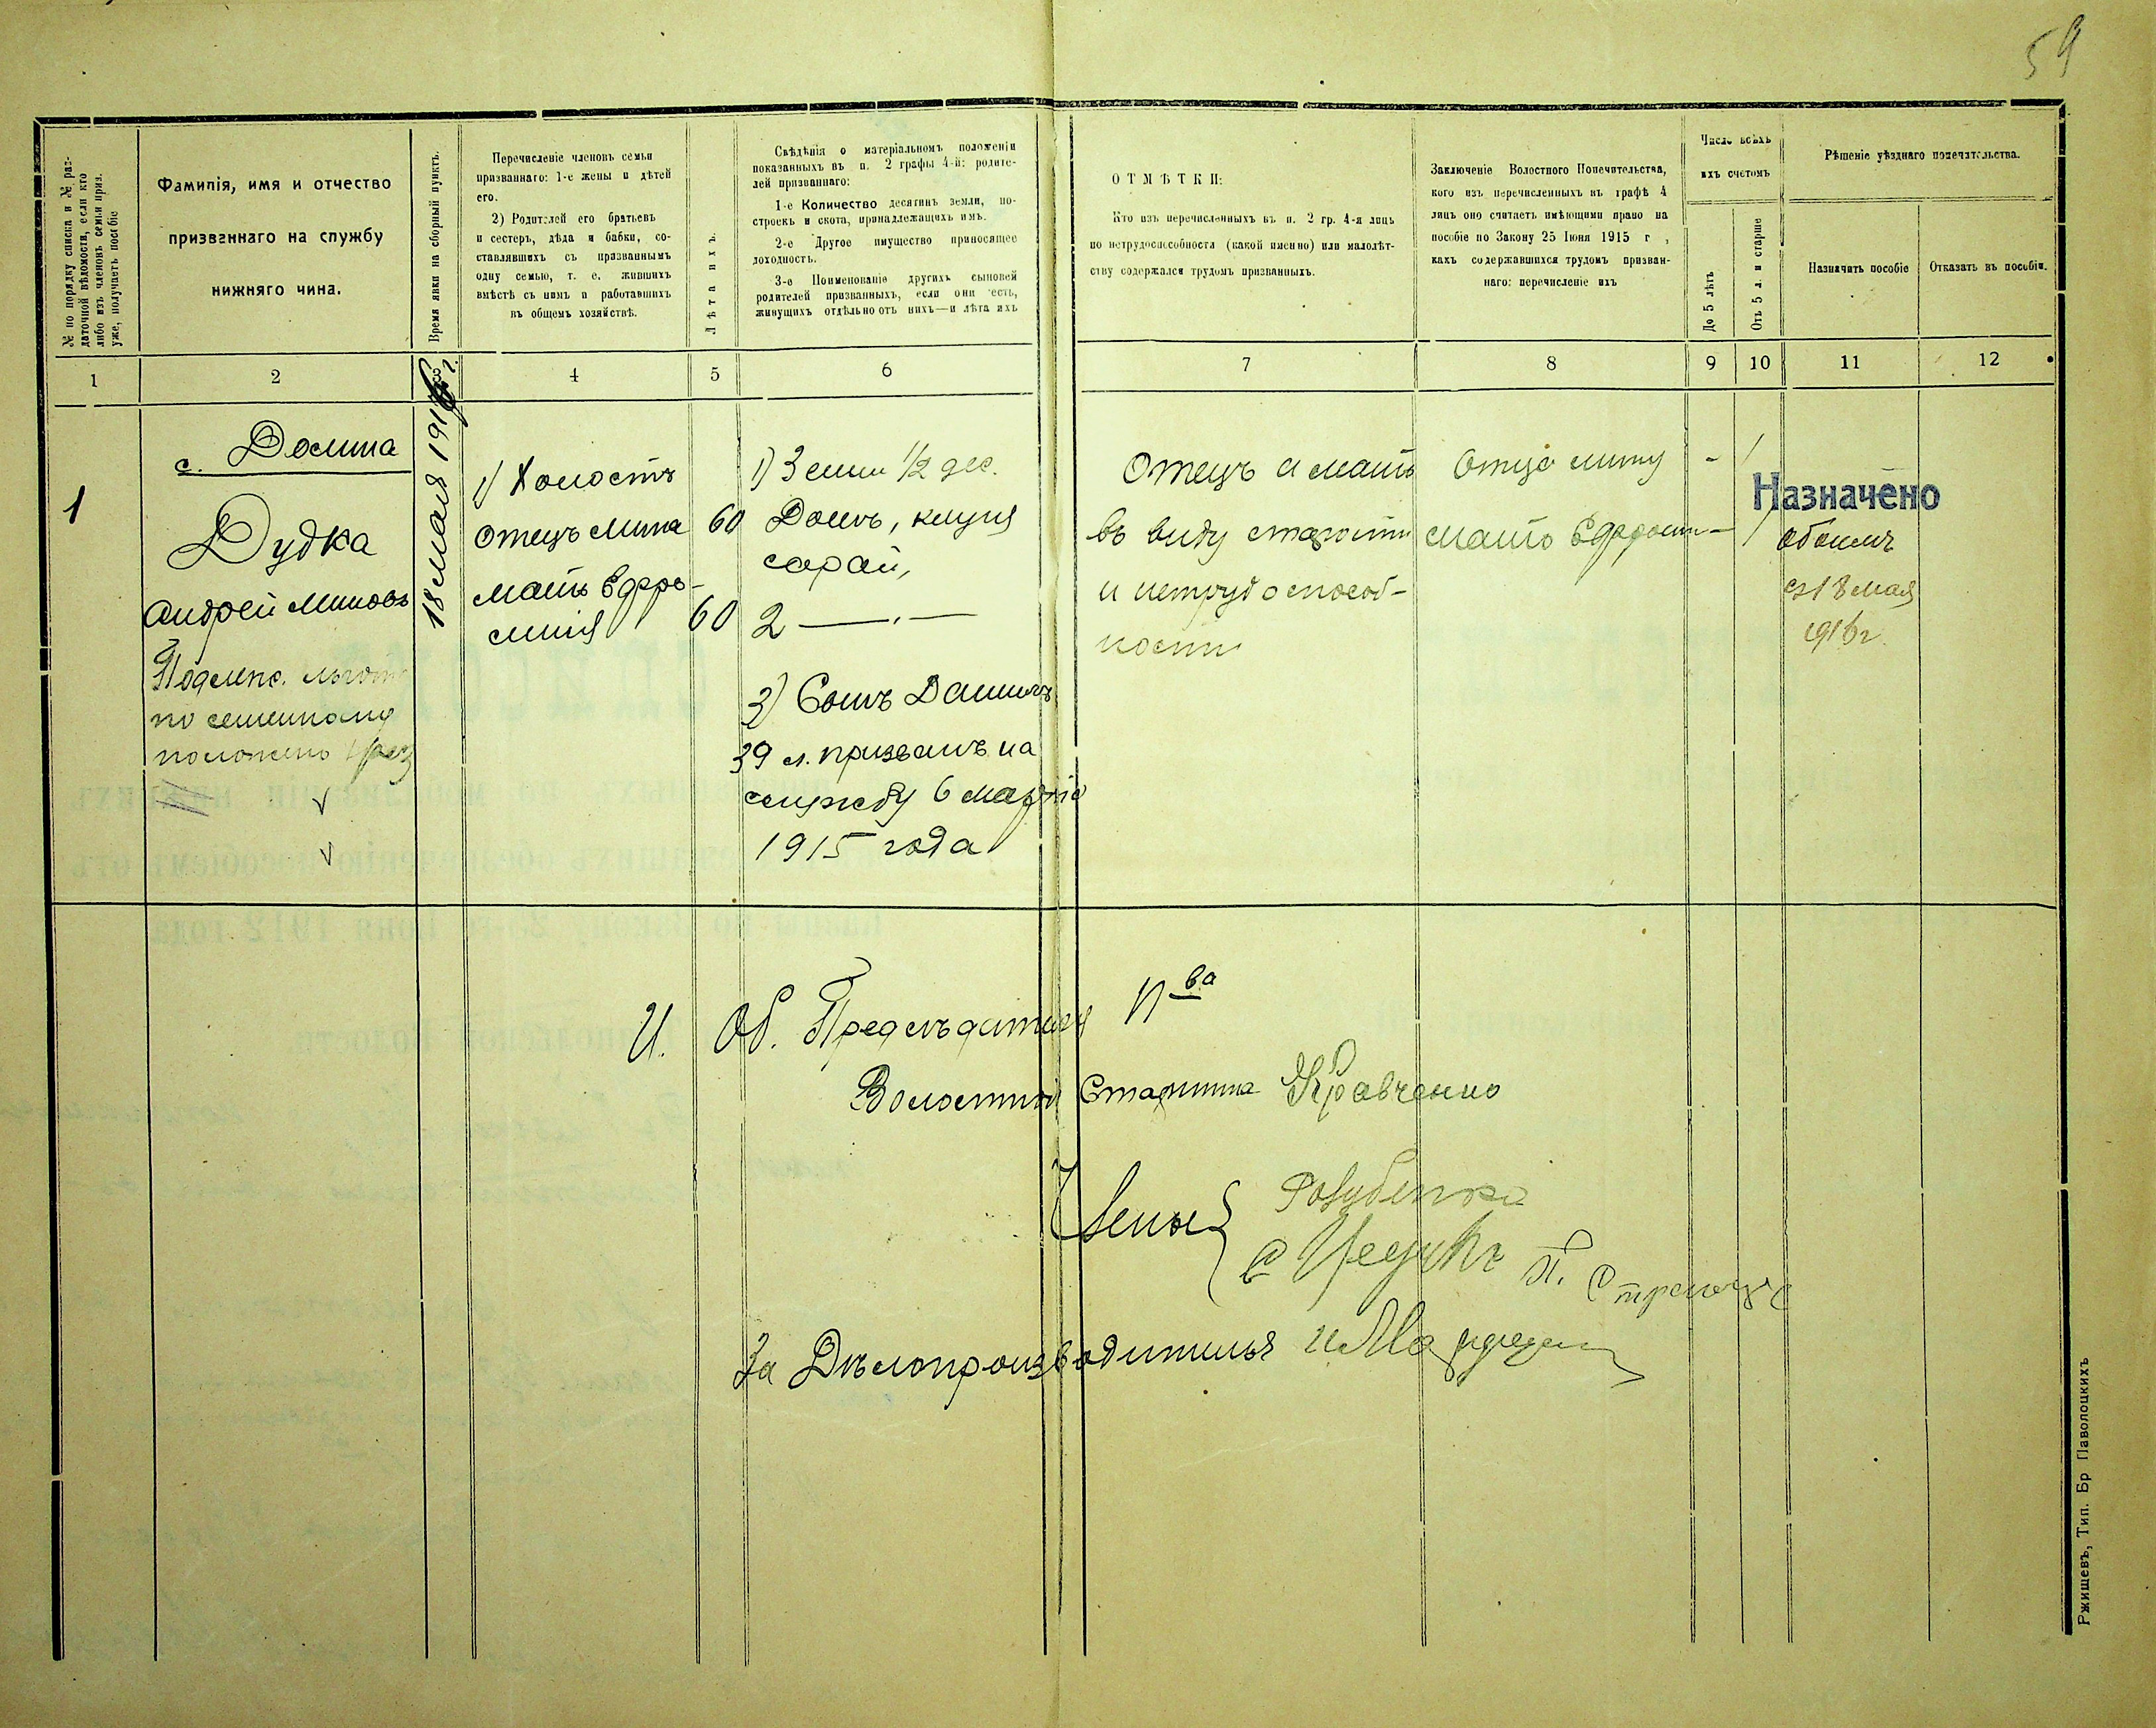 59
№ по порядку списка и № раз-
даточной вѣдомости, если кто
либо изъ членовъ семьи приз.
уже, получаетъ пособіе
Фамилія, имя и отчество
призваннаго на службу
нижняго чина.
Время явки на сборный пунктъ.
Перечисленіе членовъ семьи
призваннаго: 1-е жены и дѣтей
его.
2) Родителей его братьевъ
и сестеръ, дѣда и бабки, со-
ставлявшихъ съ призваннымъ
одну семью, т. е. жившихъ
вмѣстѣ съ нимъ и работавшихъ
въ общемъ хозяйствѣ.
Лѣта ихъ.
Свѣдѣнія о матеріальномъ положеніи
показанныхъ въ п. 2 графы 4-й: родите-
лей призваннаго:
1-е Количество десятинъ земли, по-
строекъ и скота, принадлежащихъ имъ.
2-е Другое имущество приносящее
доходность.
3-е Поименованіе другихъ сыновей
родителей призванныхъ, если они есть,
живущихъ отдѣльно отъ нихъ—и лѣта ихъ
ОТМѢТКИ:
Кто изъ перечисленныхъ въ п. 2 гр. 4-я лицъ
по нетрудоспособности (какой именно) или малолѣт-
ству содержался трудомъ призванныхъ.
Заключеніе Волостного Попечительства,
кого изъ перечисленныхъ въ графѣ 4
лицъ оно считаетъ имѣющими право на
пособіе по Закону 25 Іюня 1915 г ,
какъ содержавшихся трудомъ призван-
наго: перечисленіе ихъ
Число всѣхъ
ихъ счетомъ
До 5 лѣтъ
Отъ 5 л. и старше
Рѣшеніе уѣзднаго попечительства.
Назначить пособіе
Отказать въ пособіи.
1 2 3 4 5 6 7 8 9 10 11 12
1
с. Долина
Дудка
Андрей Миновъ
по семейному
18 мая 1916 г.
1) Холостъ
отецъ Мина 60
мать Ефро-
синія 60
1) Земли 1/2 дес.
Домъ, клуня
сарай,
2 — " —
3) Сынъ Даниилъ
39 л. призванъ на
службу 6 марта
1915 года
Отецъ и мать
въ виду старости
и нетрудоспособ-
ности
Отца Мину - /
мать Ефросин - /
Назначено
обоимъ
съ 18 мая
1916 г.
И. Об. Предсѣдателя П-ва
Волостной Старшина Кравченко
Члены
За Дѣлопроизводителя
Ржищевъ, Тип. Бр Паволоцкихъ